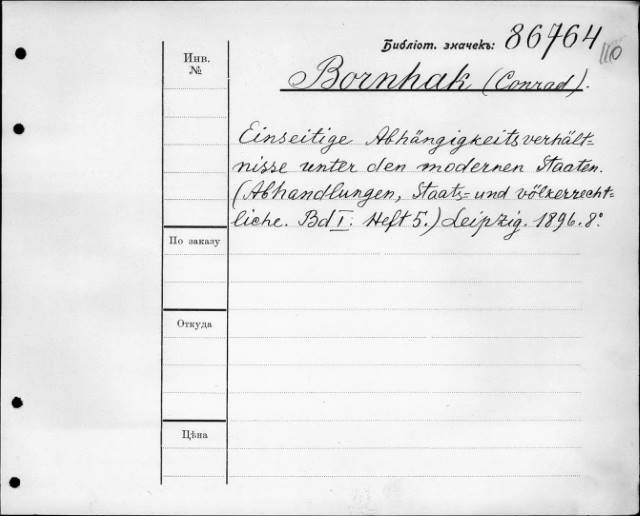 Библіот. значекъ: 86764
110
Инв.
№
Bornhak (Conrad).
Einseitige Abhängigkeitsverhält=
nisse unter den modernen Staaten.
(Abhandlungen, Staats= und völkerrecht=
liche. Bd I. Heft 5.) Leipzig. 1896. 8°.
По заказу
Откуда
Цѣна